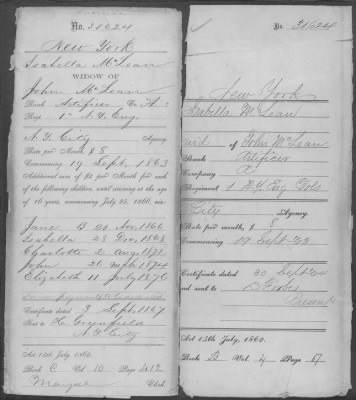 No. 31624
New York
Isabella McLean
WIDOW OF
John McLean
Rank Artificer Co. A
Regt 1st N.Y. Eng
N.Y. City Agency
Rate per Month, $8
Commencing 19 Sept. 1863
Additional sum of $2 per Month for each
of the following children, until arriving at the age of
16 years, commencing July 25, 1866, viz:
Jane B 20 Nov 1866
Isabella 28 Dec 1868
Charlotte 2 Aug 1871
John 26 Mch 1874
Elizabeth 11 July 1876
Certificate dated 3 Sept. 1867
Sent to H. Greenfield
N.Y. City
Act 14th July, 1862.
Book C Vol. 10 Page 412
Clerk
No. 31624
New York
Isabella McLean
wid of John McLean
Rank Artificer
Company A
Regiment 1 N.Y. Eng Vols
City Agency
Rate per month, $ 8
Commencing 19 Sept 63
Certificate dated 30 Sept 64
and sent to
Present
Act 14th July, 1862.
Book B Vol. 4 Page 17